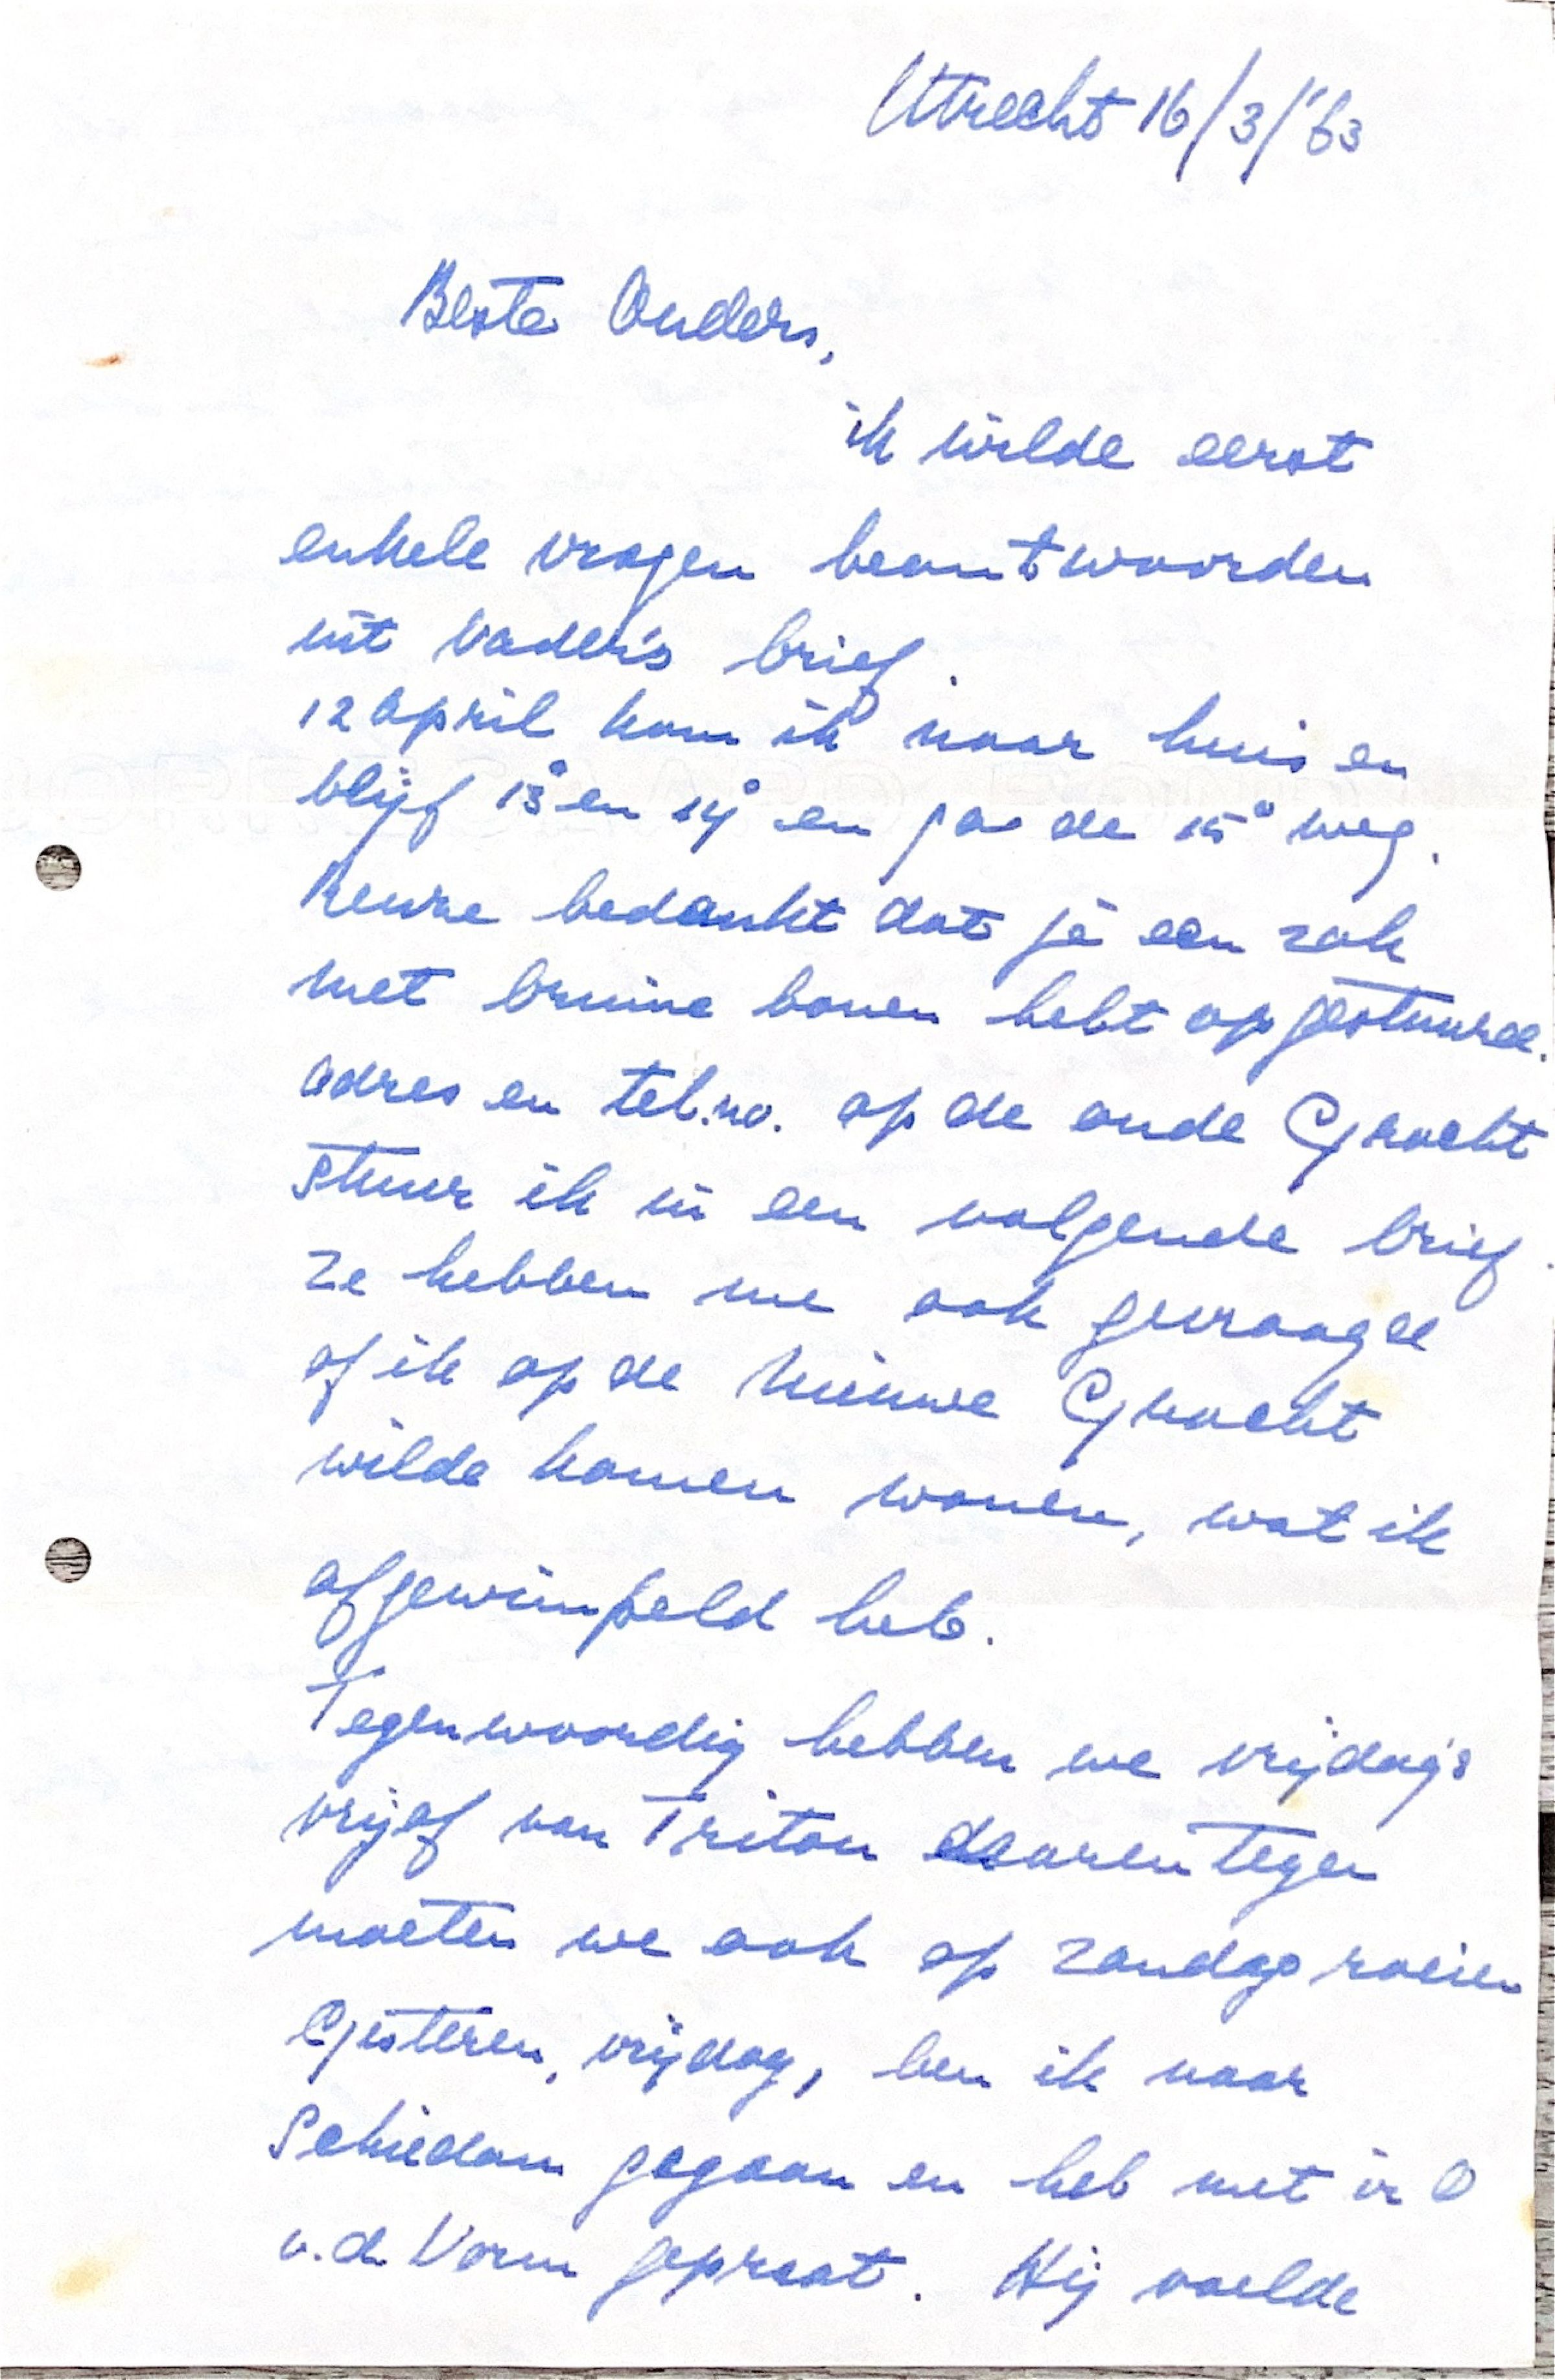 Utrecht 16/3/'63
Beste Ouders,
ik wilde eerst
enkele vragen beantwoorden
uit vader's brief.
12 april kom ik naar huis en
blijf 13e en 14e en ga de 15e weg.
Reuze bedankt dat je een zak
met bruine bonen hebt opgestuurd.
Adres en tel.no. op de oude Gracht
stuur ik in een volgende brief.
Ze hebben me ook gevraagd
of ik op de Nieuwe Gracht
wilde komen wonen, wat ik
afgewimpeld heb.
Tegenwoordig hebben we vrijdag's
vrijaf van Triton daarentegen
moeten we ook op zondag roeien
Gisteren, vrijdag, ben ik naar
Schiedam gegaan en heb met ir O
v.d Vorm gepraat. Hij voelde